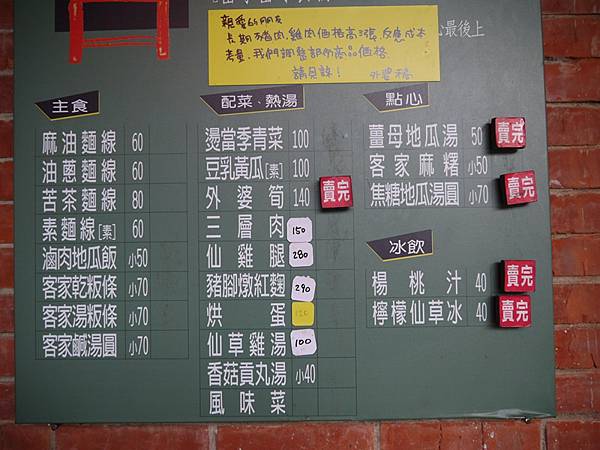 心最後上
親愛的朋友
長期豬肉、雞肉價格高漲，反應成本
考量，我們調整部份商品價格
請見諒！ 外婆 稿
主食
麻油麵線 60
油蔥麵線 60
苦茶麵線 80
素麵線[素] 60
滷肉地瓜飯 小50
客家乾粄條 小70
客家湯粄條 小70
客家鹹湯圓 小70
配菜、熱湯
燙當季青菜 100
豆乳黃瓜[素] 100
外婆筍 140 賣完
三層肉 150
仙雞腿 280
豬腳燉紅麴 290
烘蛋 120
仙草雞湯 100
香菇貢丸湯 小40
風味菜
點心
薑母地瓜湯 50 賣完
客家麻糬 小50
焦糖地瓜湯圓 小70 賣完
冰飲
楊桃汁 40 賣完
檸檬仙草冰 40 賣完